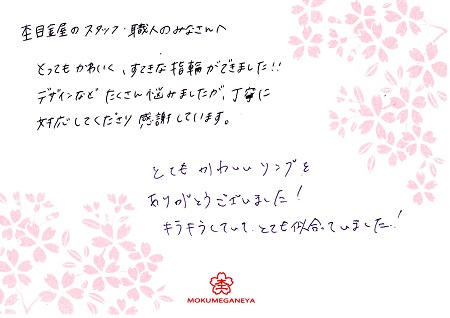 杢目金屋のスタッフ・職人のみなさんへ
とってもかわいく、すてきな指輪ができました!!
デザインなど たくさん悩みましたが、丁寧に
対応してくださり 感謝しています。
とてもかわいいリングを
ありがとうございました!
キラキラしていて、とても似合っていました!
MOKUMEGANEYA